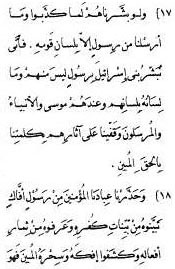 ١٧) ولو بشرناهم لما كذبوا وما
أرسلنا من رسول إلا بلسان قومه . فأنى
يُبشّر بنى إسرائيل رسول ليس منهم وما
لسانه بلسانهم وعندهم موسى والأنبياء
والمرسلون وقفينا على آثارهم بكلمتنا
بالحق المبين .
١٨) وحذّرنا عبادنا المؤمنين من رسول أفّاكٍ
تبيّنوه من بيّنات كفره وعرفوه من ثمار
أفعاله وكشفوا إفكه وسحره المبين فهو